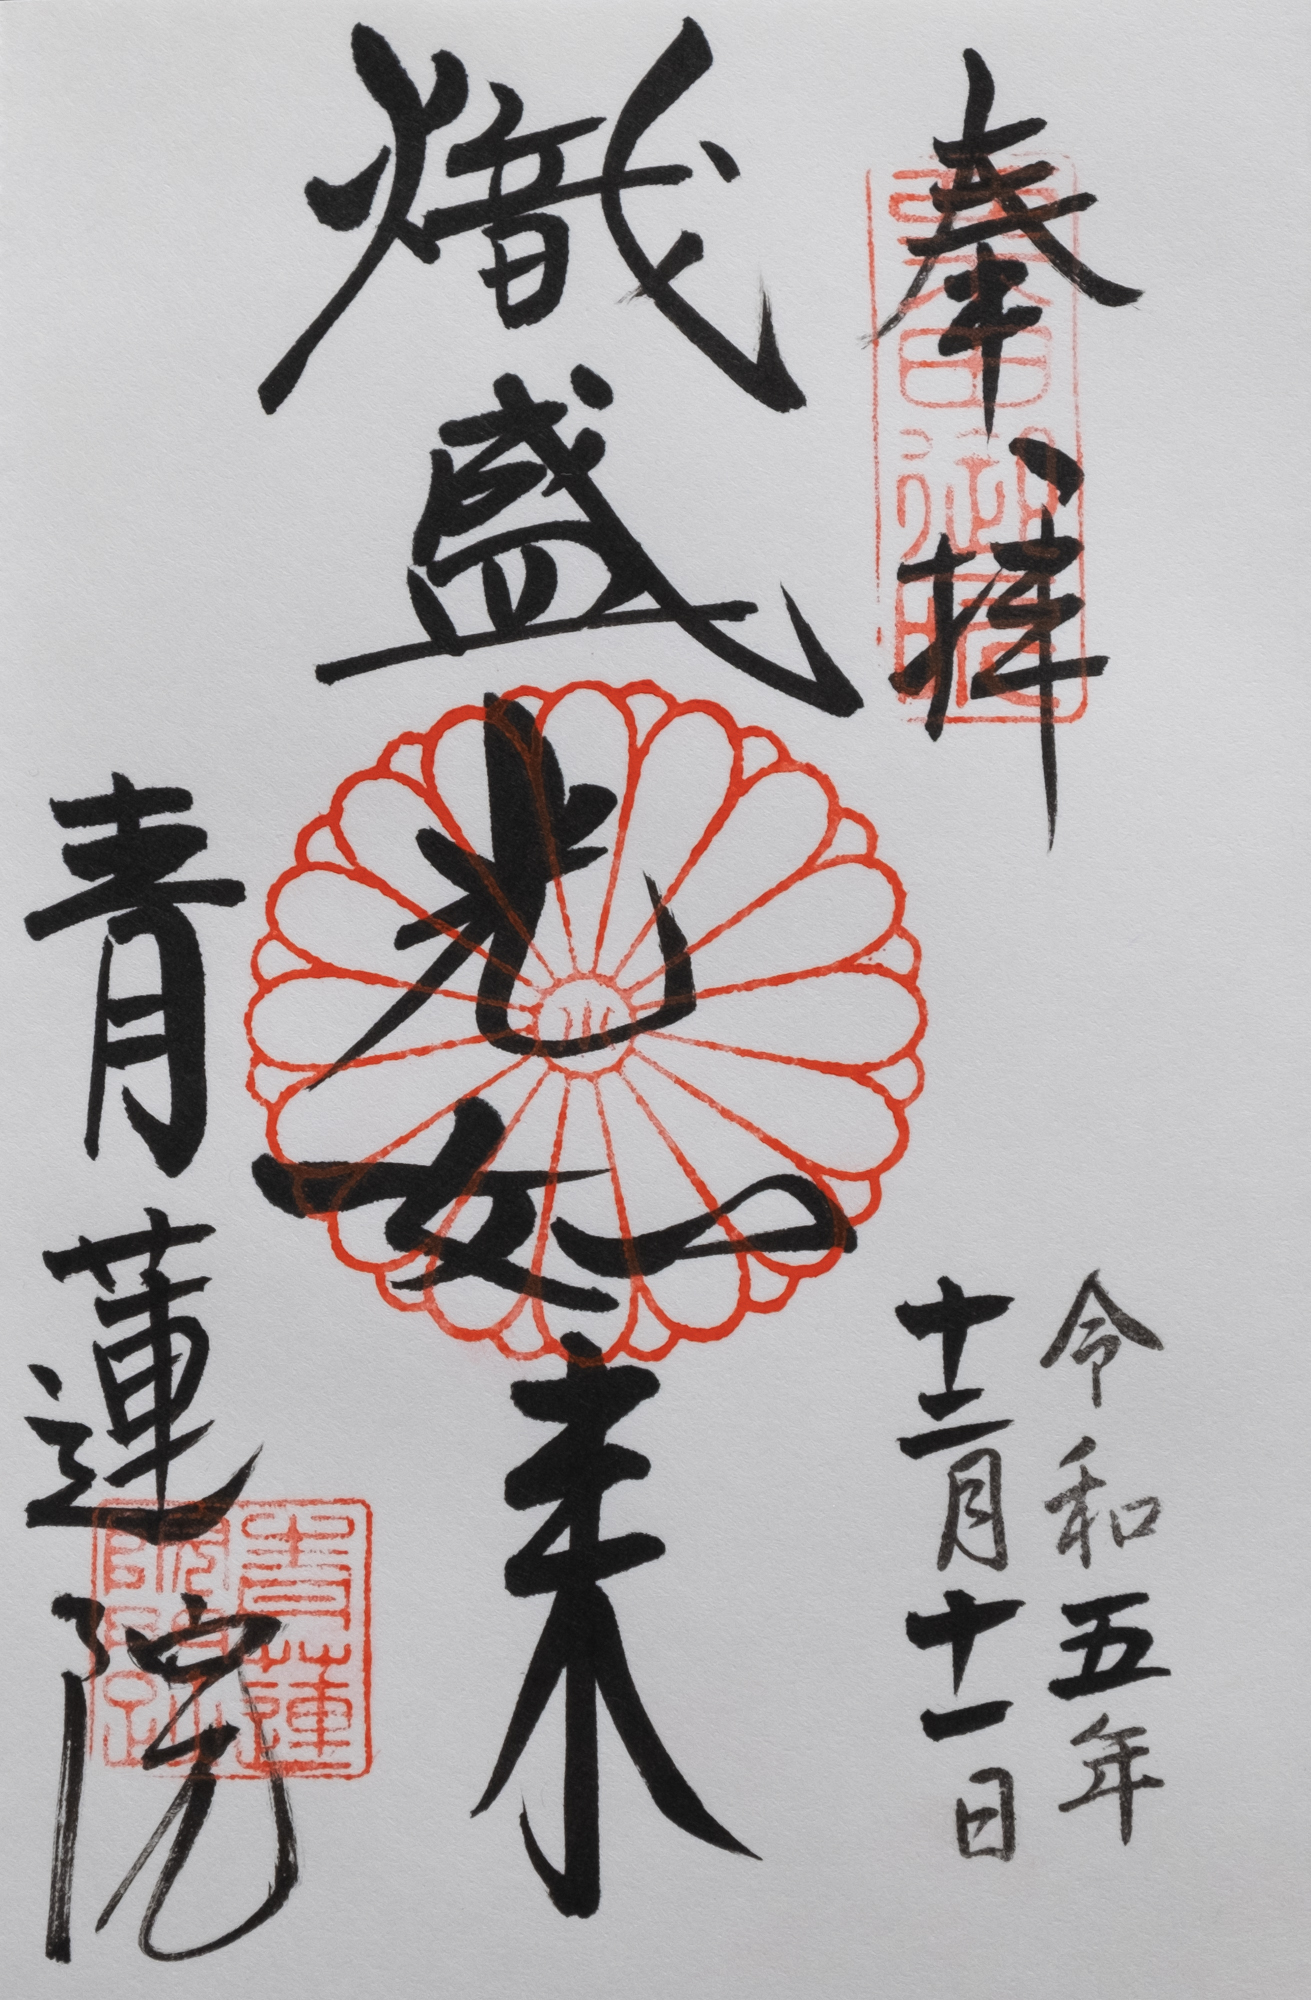 奉拝
令和五年
十二月十一日
熾盛光如来
青蓮院
青蓮
院